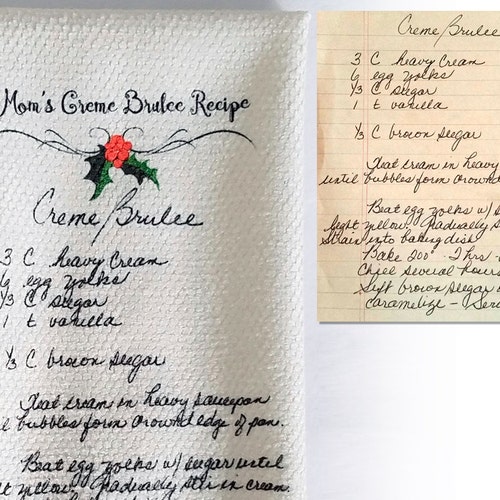 Mom's Creme Brulee Recipe
Creme Brulee
3 C heavy Cream
6 egg yolks
1/3 C sugar
1 t vanilla
1/3 C brown sugar
Heat cream in heavy saucepan
bubbles form around edge of pan.
Beat egg yolks w/ sugar until
yellow. Gradually stir in cream.
Creme Brulee
3 C heavy Cream
6 egg yolks
1/3 C sugar
1 t vanilla
1/3 C brown sugar
Heat cream in heavy
until bubbles form around
Beat egg yolks w/
light yellow. Gradually
Strain into baking dish
Bake 200° - 2 hrs -
Chill several hours
Sift brown sugar
caramelize -